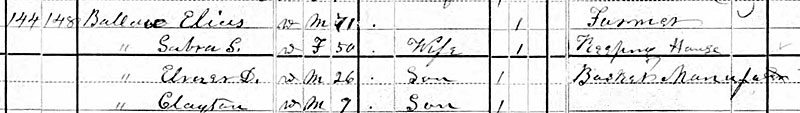 144 148 Ballou Elias W M 71 . 1 Farmer
" Sabra S. W F 50 . Wife 1 Keeping House
" Elmer D. W M 26 . Son 1 Basket Manufa
" Clayton W M 9 . Son 1